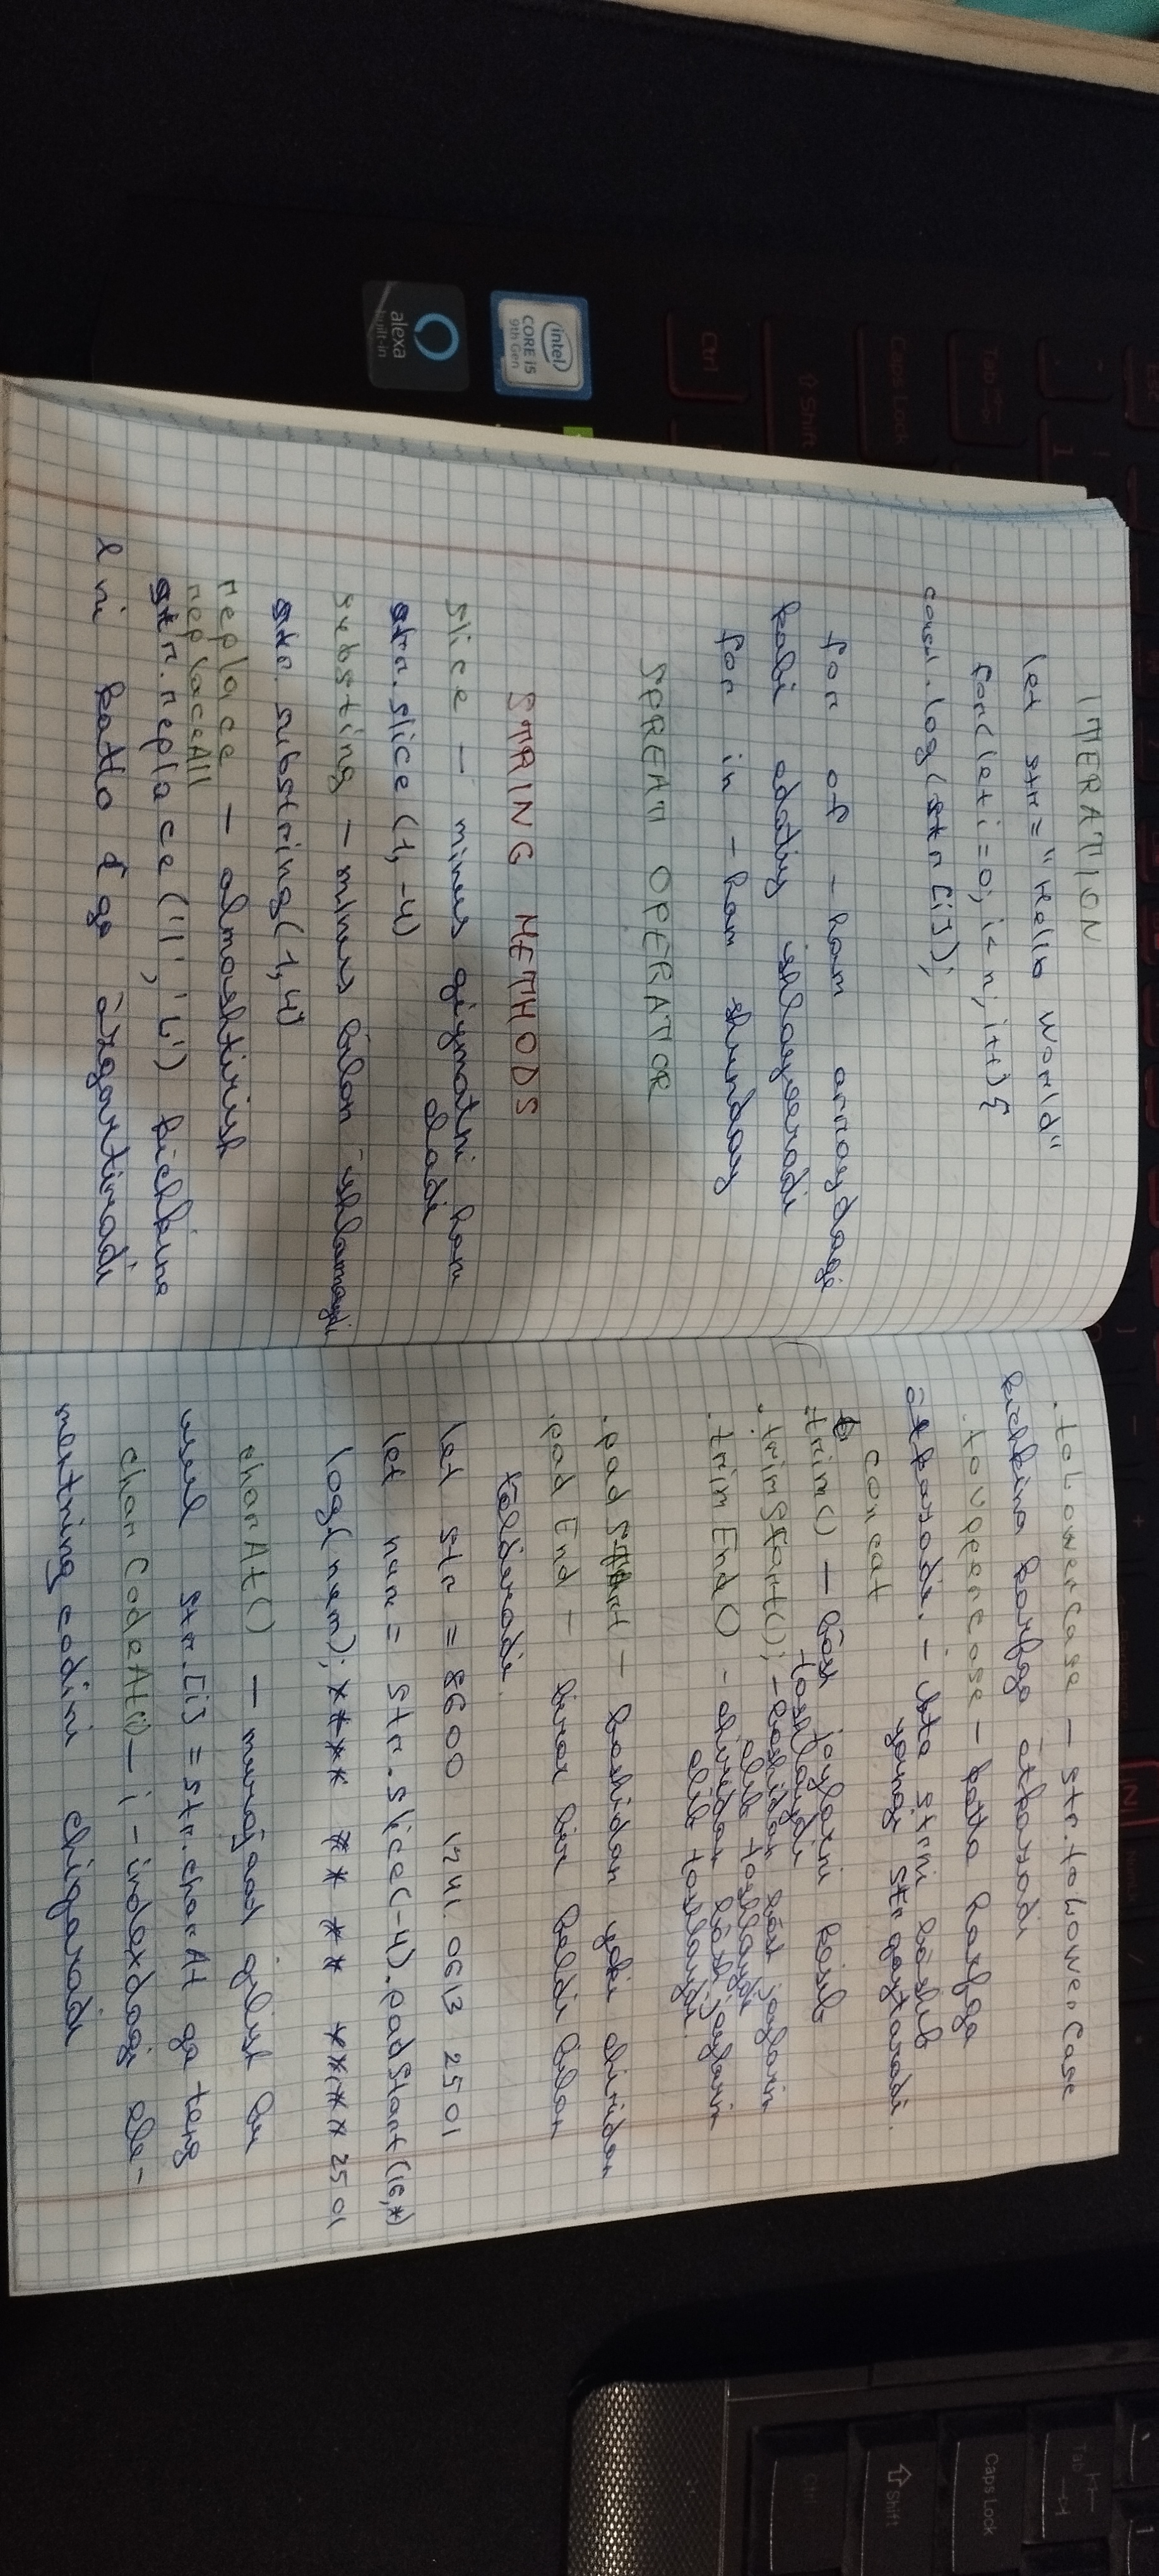 ITERATION
let str = "Hello world"
for(let i=0; i<n; i++){
consl.log(str[i]);
for of - ham arraydagi
kabi odatiy ishlayveradi
for in - ham shunday
SPREAT OPERATOR
STRING METHODS
slice - minus qiymatni ham
oladi
str.slice(1,-4)
substing - minus bilan ishlamaydi
str.substring(1,4)
replace - almashtirish
replaceAll
str.replace('l', 'L') kichkina
l ni katta L ga özgartiradi
.toLowerCase - str.toLowerCase
kichkina harfga ötkazadi
.toUpearCase - katta harfga
ötkazadi. - ikta strni böshib
concat yangi str qaytaradi.
trim() - bösh joylarni kesib
tashlaydi
.trimStart(); - boshidan bösh joylarin
olib tashlaydi
.trimEnd() - oxiridan bösh joylarin
olib tashlaydi.
.padStart - boshidan yoki oxiridan
.padEnd - biror bir belgi bilan
töldiradi.
let str = 8600 1241 0613 2501
let num = str.slice(-4).padStart(16,*)
log(num); **** **** **** 2501
charAt() - murojaat qilish bu
usul str.[i] = str.charAt ga teng
charCodeAt(i) - i - indexdagi ele-
mentning codini chiqaradi
intel
CORE i5
9th Gen
alexa
built-in
Ctrl
Shift
Caps Lock
Tab
Esc
Ctrl
Shift
Caps Lock
Tab